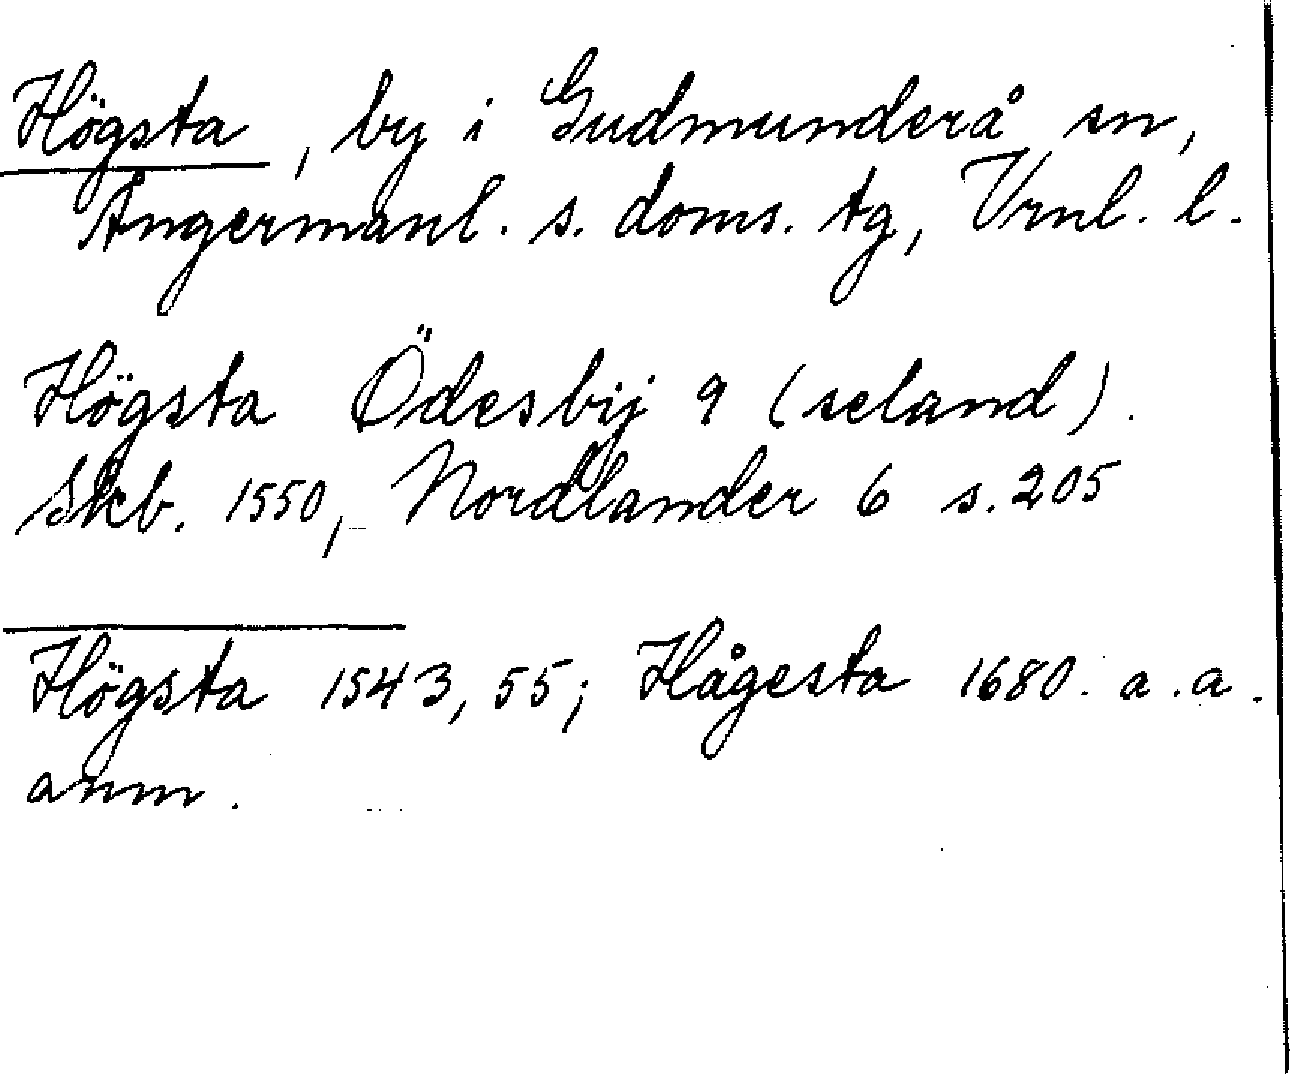 Högsta, by i Gudmunderå sn,
Ångermanl. s. doms. tg, Vrnl. l.
Högsta Ödesbÿ 9 (seland).
Skb. 1550, Nordlander 6 s. 205
Högsta 1543, 55; Hågesta 1680. a. a.
anm.